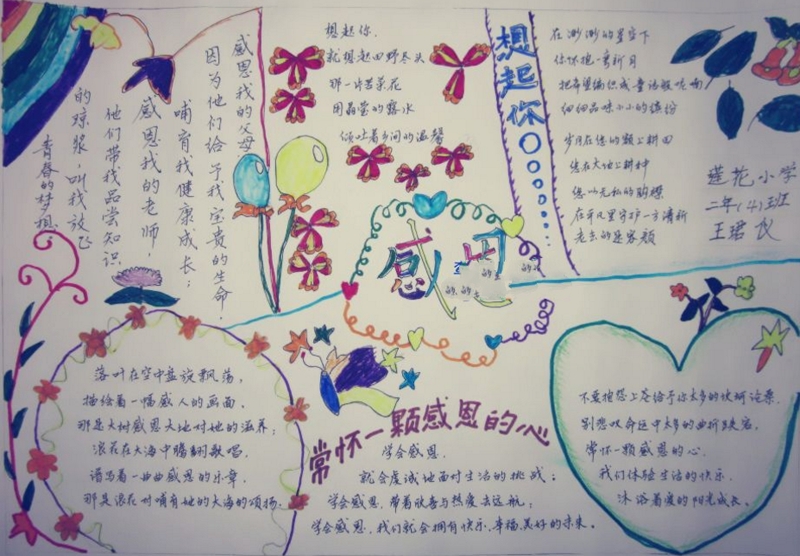 感恩我的父母,
因为他们给予我宝贵的生命!
哺育我健康成长;
感恩我的老师,
他们带我品尝知识
的琼浆,叫我放飞
青春的梦想
想起你,
就想起田野尽头
那一片苦菜花
用晶莹的露水
倾吐着乡间的温馨
想起你
在渺渺的星空下
你怀抱一弯新月
把希望编织成童话般
细细品味小小的缤纷
岁月在您的额上耕田
您在大地上耕种
您以无私的胸襟
在平凡里守护一方清新
莲花小学
二年(4)班
王珺仪
感恩
落叶在空中盘旋飘荡,
描绘着一幅感人的画面,
那是大树感恩大地对她的滋养;
浪花在大海中腾翻歌唱,
谱写着一曲曲感恩的乐章,
那是浪花对哺育她的大海的颂扬;
常怀一颗感恩的心
学会感恩,
就会虔诚地面对生活的挑战;
学会感恩,带着欣喜与热爱去远航;
学会感恩,我们就会拥有快乐、幸福、美好的未来。
不要抱怨上苍给予你太多的坎坷
别悲叹命运中太多的曲折跌宕,
常怀一颗感恩的心,
我们体验生活的快乐,
沐浴着爱的阳光成长。